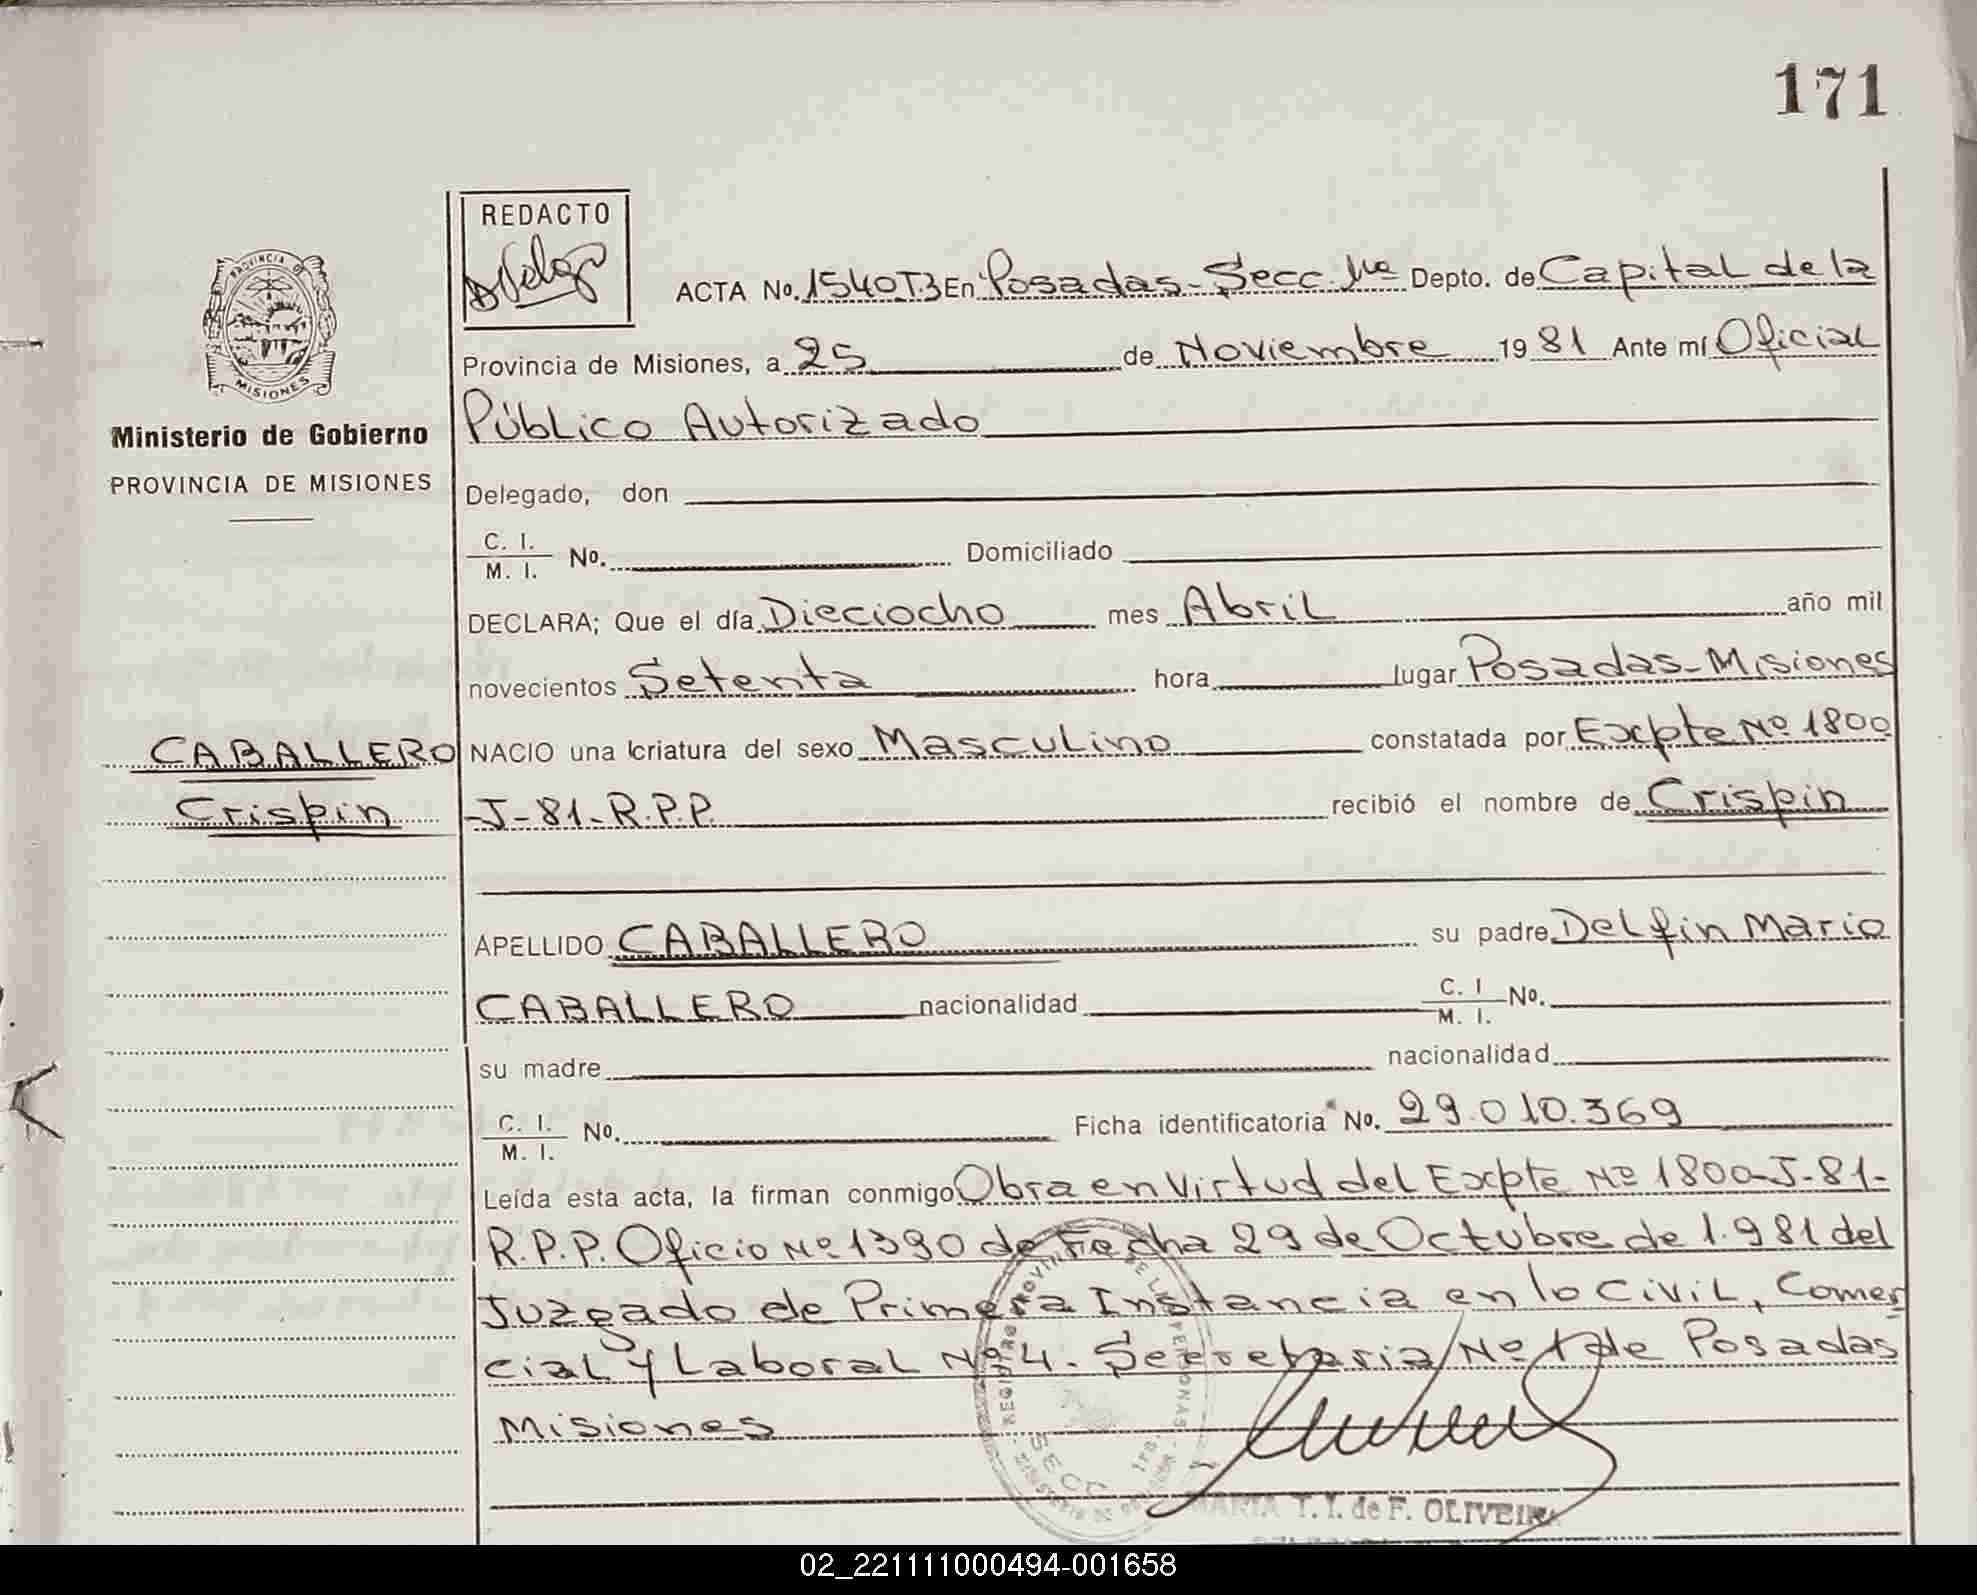 171
REDACTO
PROVINCIA DE
MISIONES
ACTA No. 1540 T.3 En Posadas - Secc. 1ra Depto. de Capital de la
Provincia de Misiones, a 25 de Noviembre 1981 Ante mí Oficial
Ministerio de Gobierno
Público Autorizado
PROVINCIA DE MISIONES
Delegado, don
C. I. No. Domiciliado
M. I.
DECLARA; Que el día Dieciocho mes Abril año mil
novecientos Setenta hora lugar Posadas-Misiones
CABALLERO NACIO una criatura del sexo Masculino constatada por Expte Nº 1800
Crispin -J-81-R.P.P. recibió el nombre de Crispin
APELLIDO CABALLERO su padre Delfin Mario
CABALLERO nacionalidad C. I No.
M. I.
su madre nacionalidad
C. I. No. Ficha identificatoria No. 29.010.369
M. I.
Leída esta acta, la firman conmigo Obra en virtud del Expte Nº 1800-J-81-
R.P.P. Oficio Nº 1390 de Fecha 29 de Octubre de 1.981 del
Juzgado de Primera Instancia en lo Civil, Comer
cial y Laboral Nº 4. Secretaria Nº 1 de Posadas
Misiones
SECC 1ra.
MARIA T. I. de F. OLIVEIRA
02_221111000494-001658